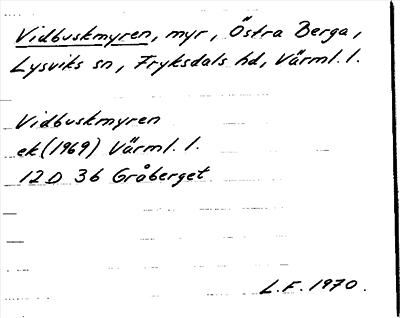 Vidbuskmyren, myr, Östra Berga,
Lysviks sn, Fryksdals hd, Värml. l.
Vidbuskmyren
ek (1969) Värml. l.
12D 3b Gråberget
L.F. 1970.